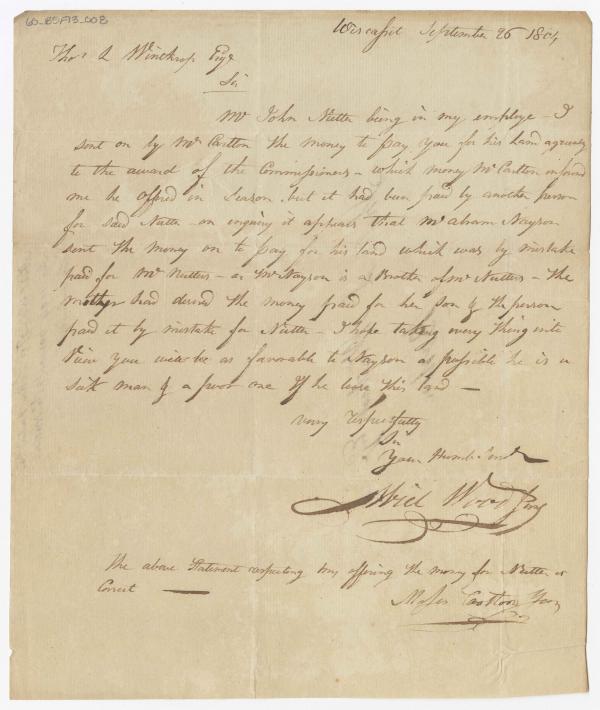 60_BOF13_008
Wiscasset September 26 1804
Thos L Winthrop Esqr
Sir
Mr John Nutter being in my employe - I
sent on by Mr Carlton the money to pay you for his Land agreeably
to the award of the Commissioners - which money Mr Carlton informd
me he offered in Season, but it had been paid by another person
for said Nutter - on inquiry it appears that Mr Abram Nayson
sent the money on to pay for his land which was by mistake
paid for Mr Nutters - as Mr Nayson is a Brother of Mr Nutters - the
mother had desired the money paid for her son & the person
paid it by mistake for Nutter - I hope taking every thing into
View you will be as favorable to Nayson as possible he is a
sick man & a poor one If he lose this land -
very respectfully
Sir
Your Humb. Servt
Abiel Wood Jun
The above Statement respecting my offering the money for Nutter is
Correct
Moses Carlton Jun